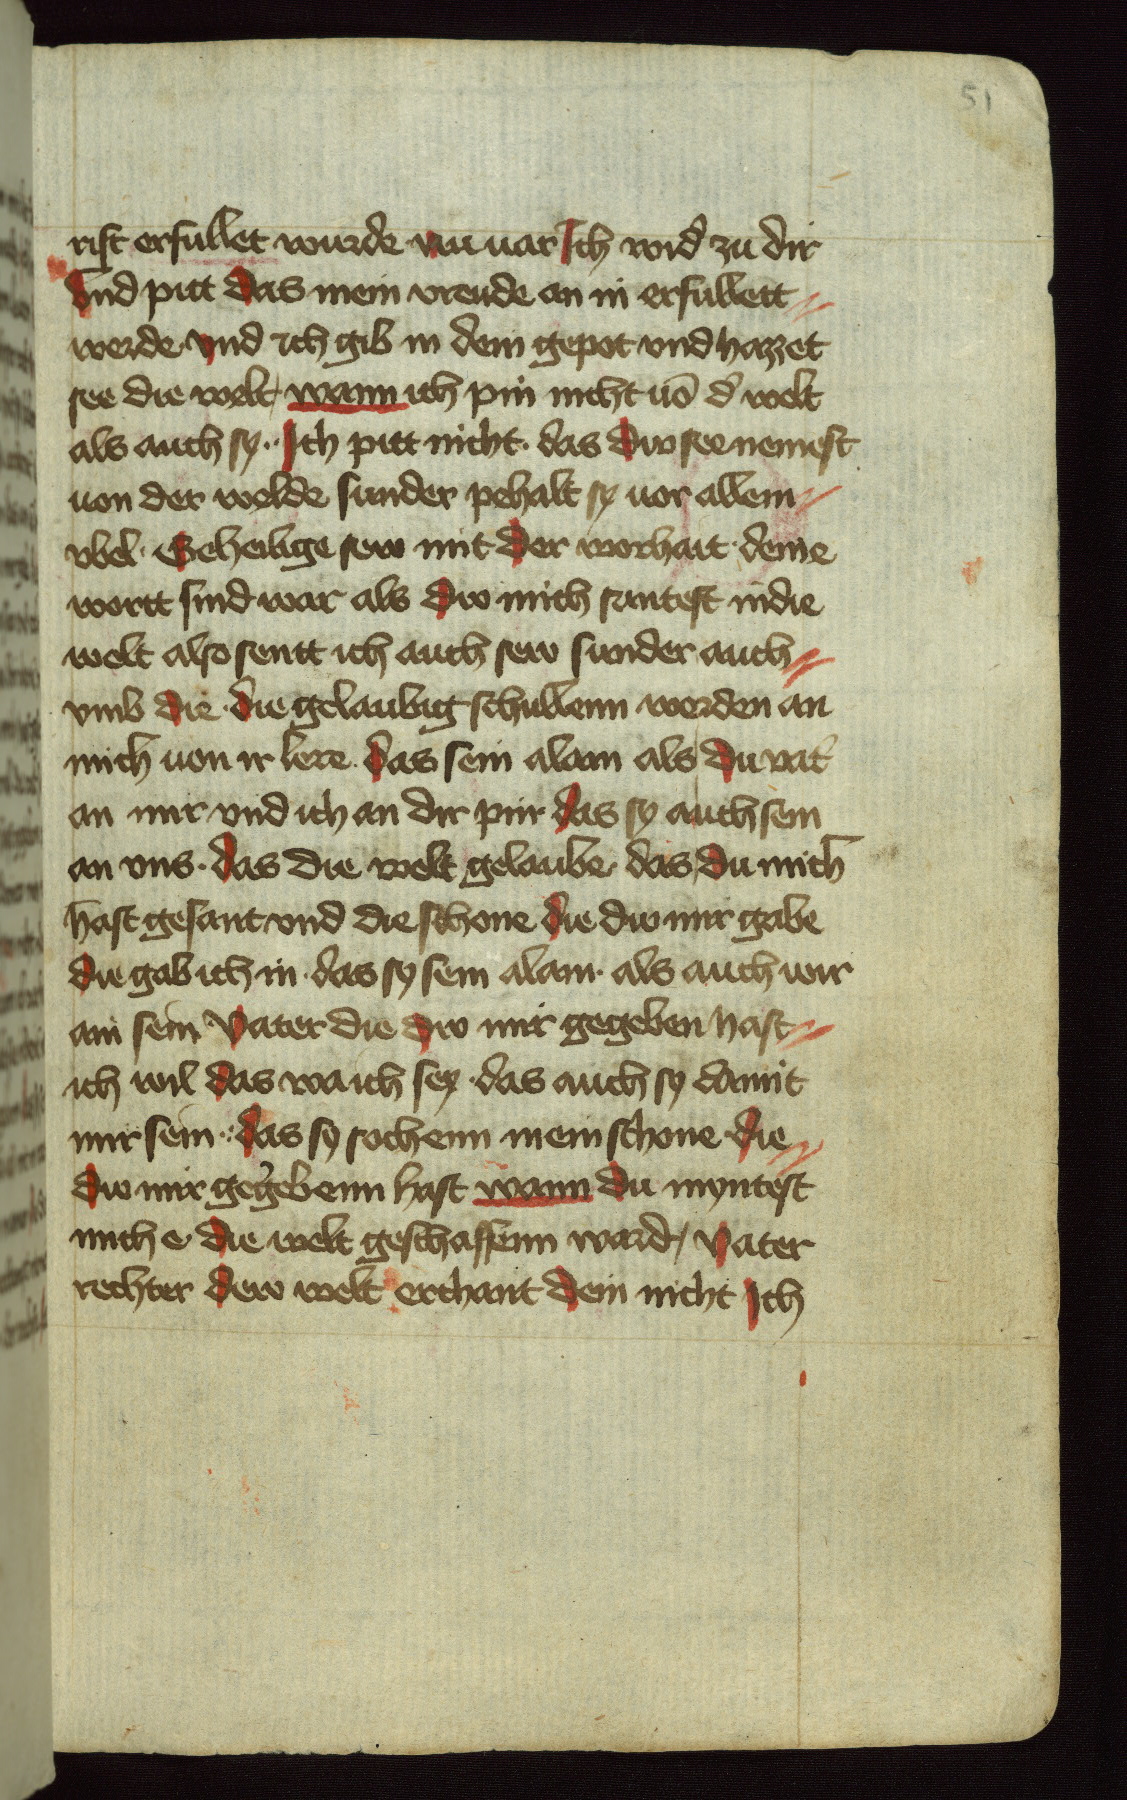 51
rift erfullet wurde nu uar Ich wid̕ zu dir
Vnd pitt das mein vreude an in erfullett
werde vnd ich gib in dein gepot vnd hazzet
see die welt wann ich pin nicht uō d̕ welt
als auch sy · Ich pitt nicht · das dw see nemest
uon der welde sunder pehalt sy uor allem
vbel · Geheilige sew mit der worhait · deine
wortt sind war als dw mich santest in die
welt also sentt ich auch sew sunder auch
vmb die · die gelaubig schullenn werden an
mich uon ir lere · das sein alain als du vat̕
an mir vnd ich an dir pin · das sy auch sein
an vns · das die welt gelaube · das du mich
hast gesant vnd die schone die dw mir gabe
die gab ich in · das sy sein alain · als auch wir
ain sein Vater die dw mir gegeben hast
ich wil das wa ich sey · das auch sy da mit
mir sein · das sy sechenn mein schone die
dw mir gegebenn hast wann du myntest
mich e die welt geschaffenn ward / Vater
rechter dew welt erchant dein nicht Ich